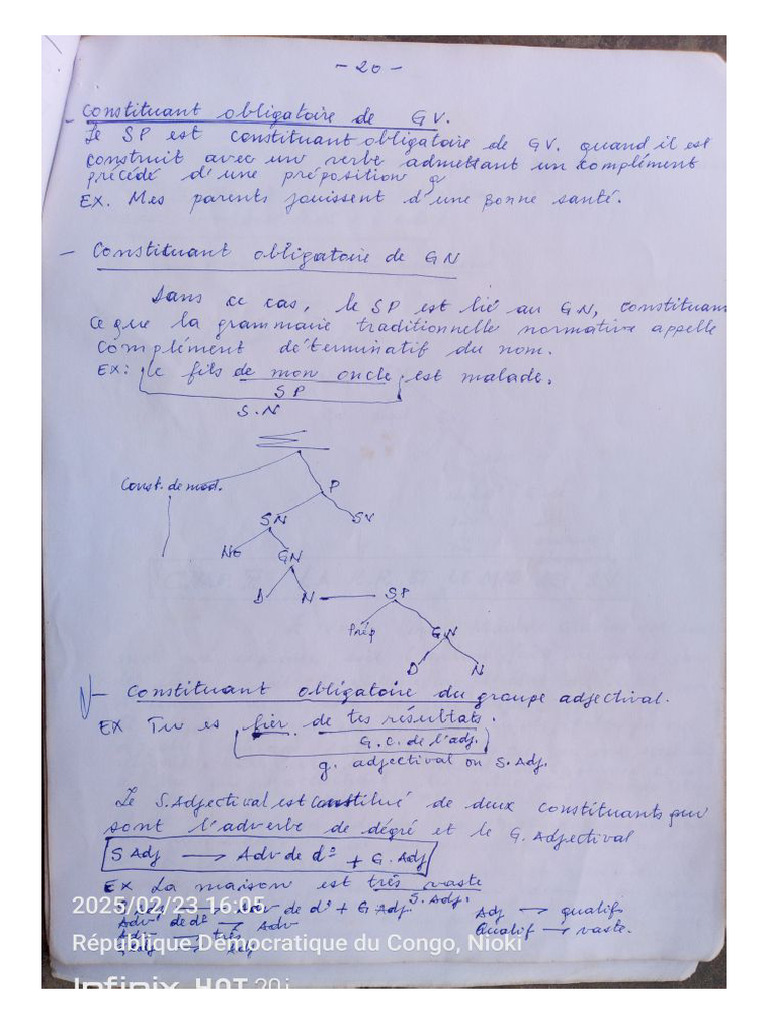 - 20 -
- Constituant obligatoire de GV.
Le SP est constituant obligatoire de GV. quand il est
construit avec un verbe admettant un complément
précédé d'une préposition
EX. Mes parents jouissent d'une bonne santé.
- Constituant obligatoire de GN
Dans ce cas, le SP est lié au GN, constituan
ce que la grammaire traditionnelle normative appelle
complément déterminatif du nom.
EX: Le fils de mon oncle est malade.
SP
S.N
Const. de mod. P
SN SV
No GN
D N SP
Prép GN
D N
- Constituant obligatoire du groupe adjectival.
EX Tu es fier de tes résultats.
G.C. de l'adj.
g. adjectival ou S. Adj.
Le S.Adjectival est constitué de deux constituants qui
sont l'adverbe de dégré et le G. Adjectival
S Adj → Adv de d° + G. Adj
EX La maison est très vaste
S. Adj.
2025/02/23 16:05
de d° + G Adj
Adj → qualif
Adv de d° → Adv
Qualif → vaste.
Adv → très
République Démocratique du Congo, Nioki
Infinix HOT 20i